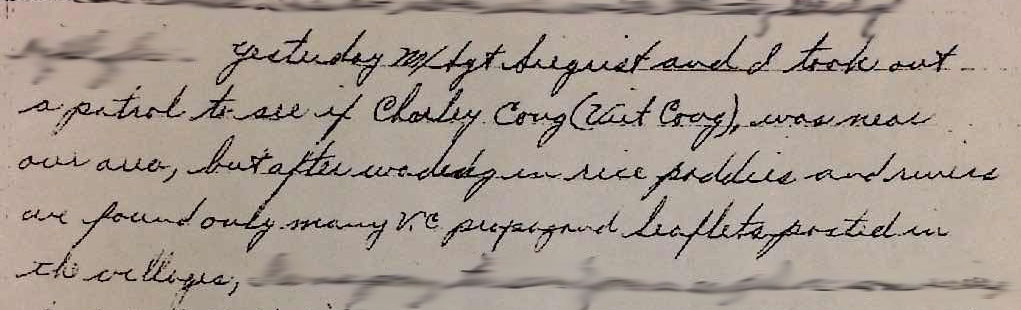 Yesterday M/Sgt Siegrist and I took out
a patrol to see if Charley Cong (Viet Cong), was near
our area, but after wading in rice paddies and rivers
we found only many V.C propagand leaflets posted in
the villages,